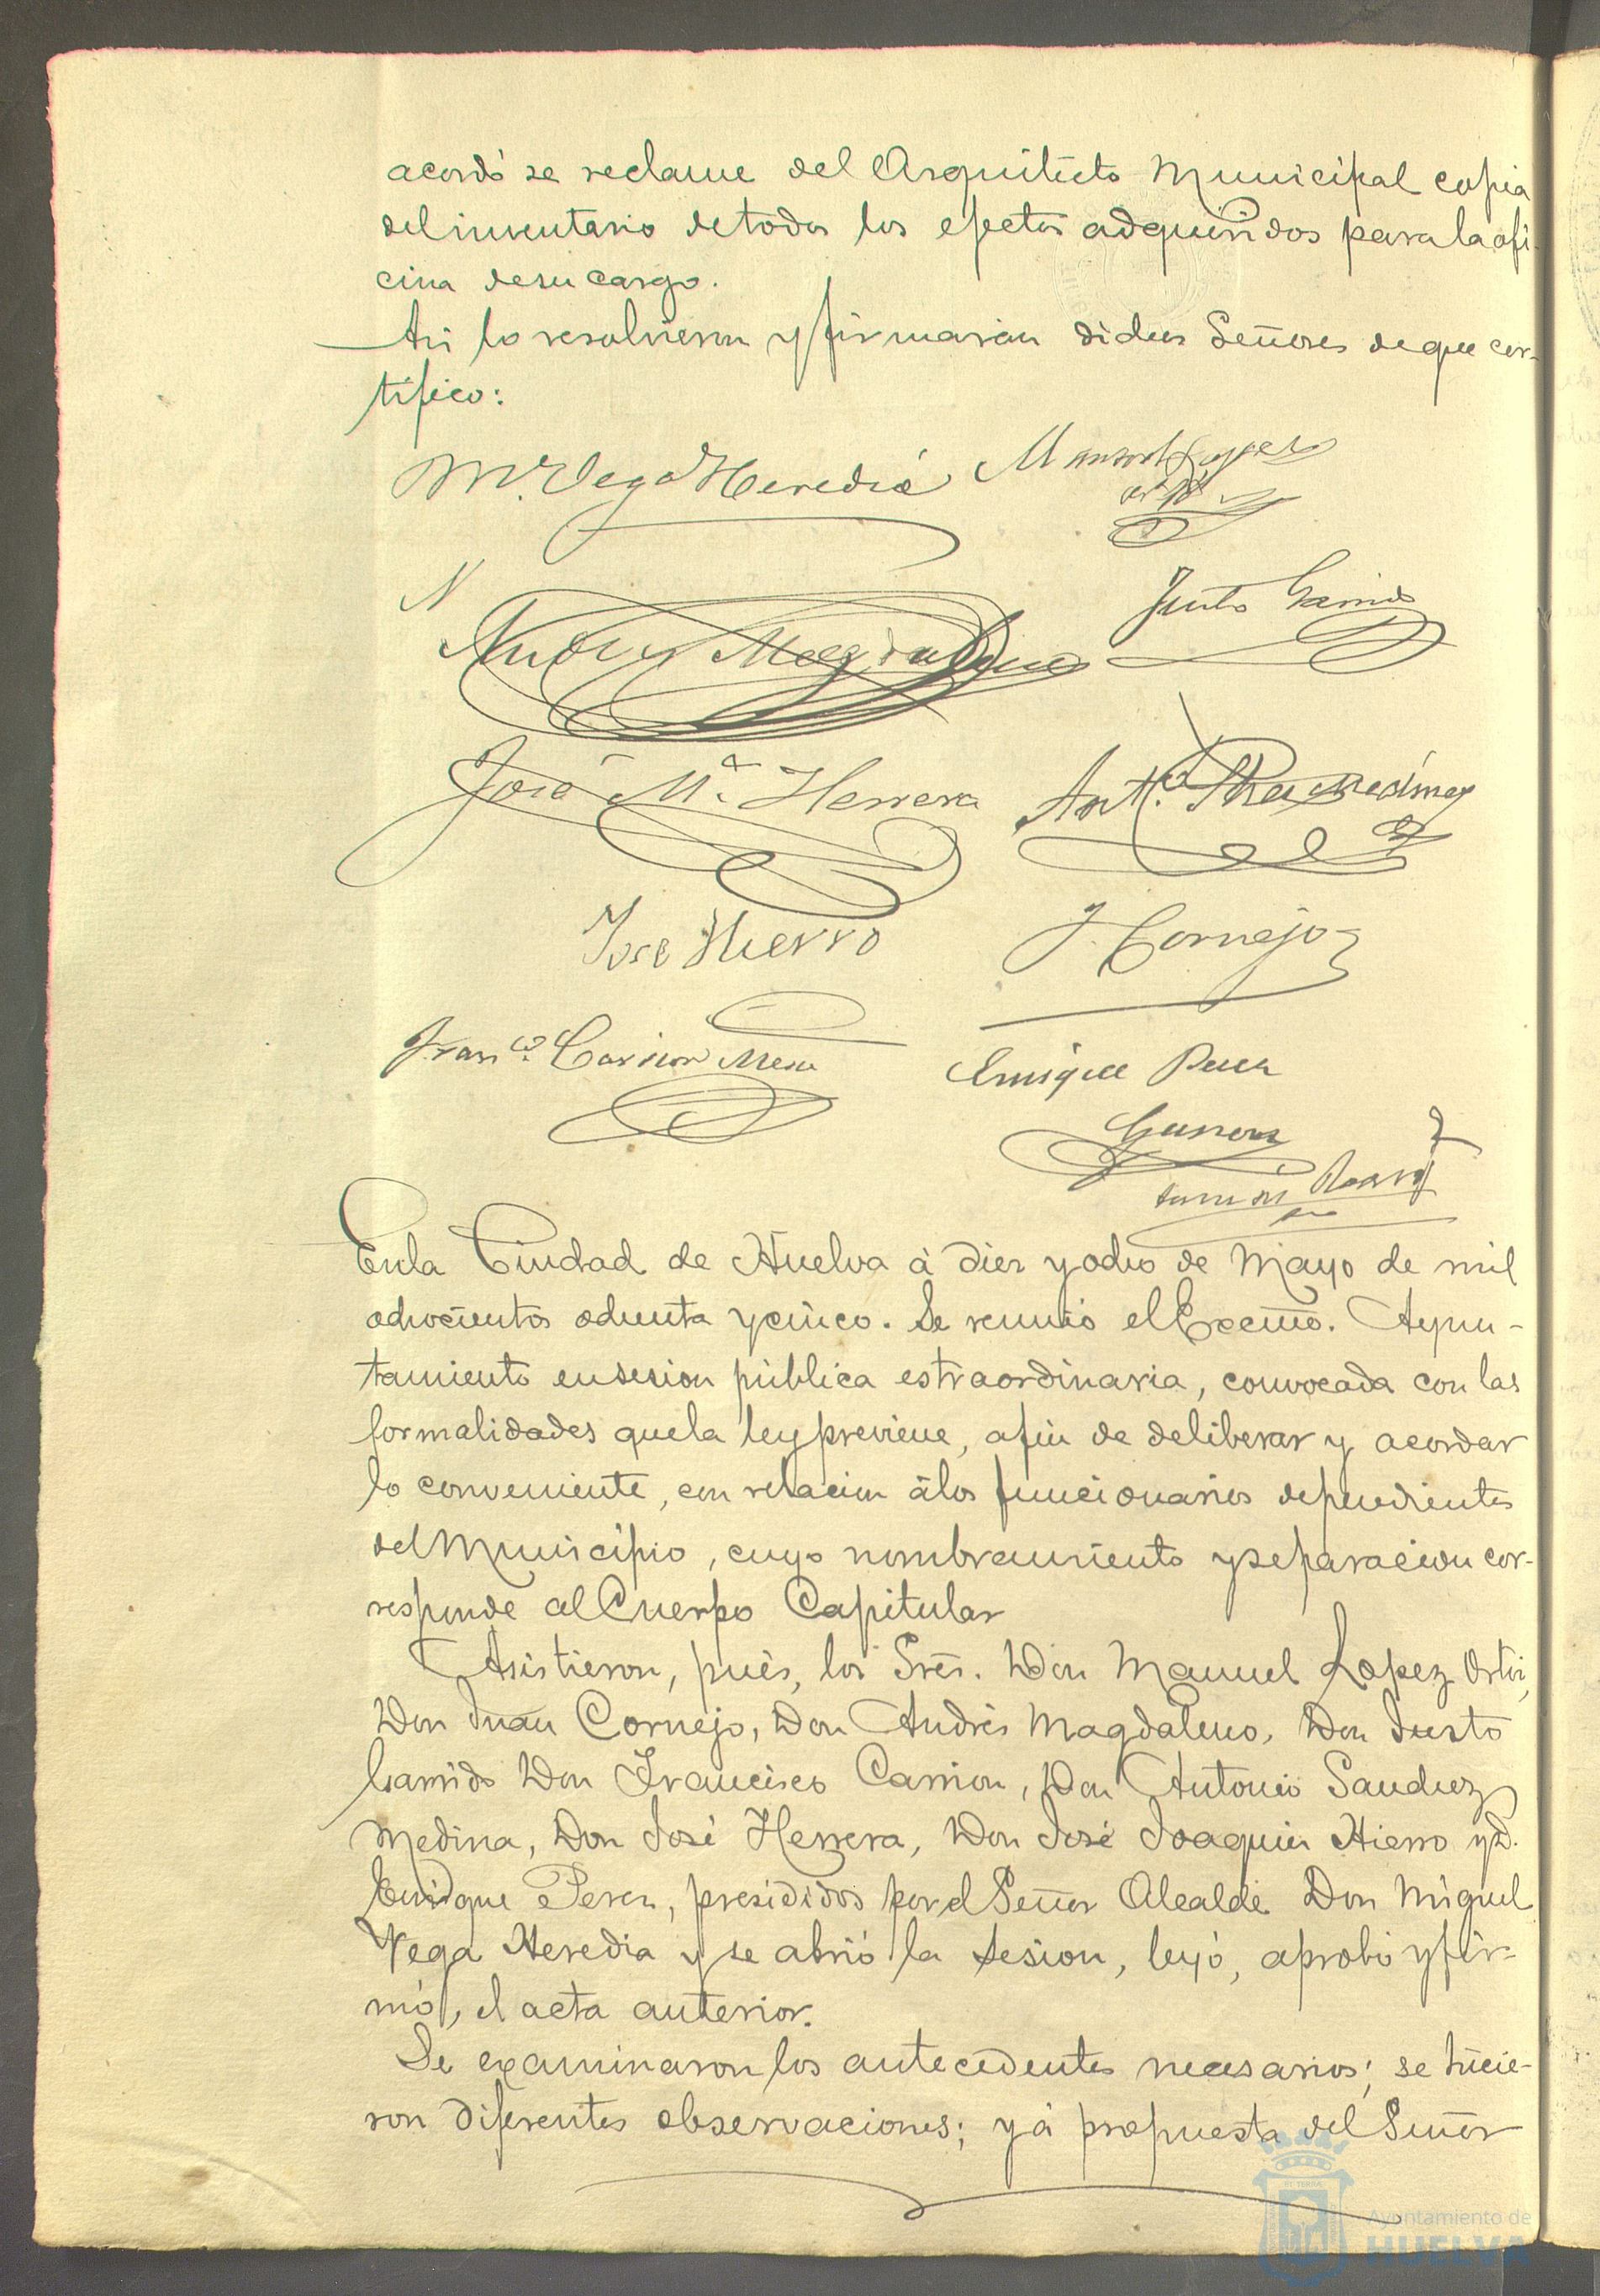 acordó se reclame del Arquitecto Municipal copia
del inventario de todos los efectos adquiridos para la ofi-
cina de su cargo.
Asi lo resolvieron y firmarán dichos Señores de que cer-
tifico:
M. Vega Heredia
Manuel Lopez
Ortiz
N
Andrés Magdaleno
Justo Garrido
José Mª. Herrera
Antº. Sanchez Medina
José Hierro
J. Cornejo
Franco. Carrion Mesa
Enrique Perez
Guerrero
En la Ciudad de Huelva á diez y ocho de Mayo de mil
ochocientos ochenta y cinco. Se reunió el Excmo. Ayun-
tamiento en sesion pública estraordinaria, convocada con las
formalidades que la ley previene, afin de deliberar y acordar
lo conveniente, con relacion á los funcionarios dependientes
del Municipio, cuyo nombramiento y separacion cor-
responde al Cuerpo Capitular
Asistieron, pués, los Sres. Don Manuel Lopez Ortiz,
Don Juan Cornejo, Don Andrés Magdaleno, Don Justo
Garrido Don Francisco Carrion, Don Antonio Sanchez
Medina, Don José Herrera, Don José Joaquin Hierro y D.
Enrique Perez, presididos por el Señor Alcalde Don Miguel
Vega Heredia y se abrió la sesion, leyó, aprobó y fir-
mó, el acta anterior.
Se examinaron los antecedentes necesarios; se hicie-
ron diferentes observaciones; y á propuesta del Señor
Ayuntamiento de
HUELVA